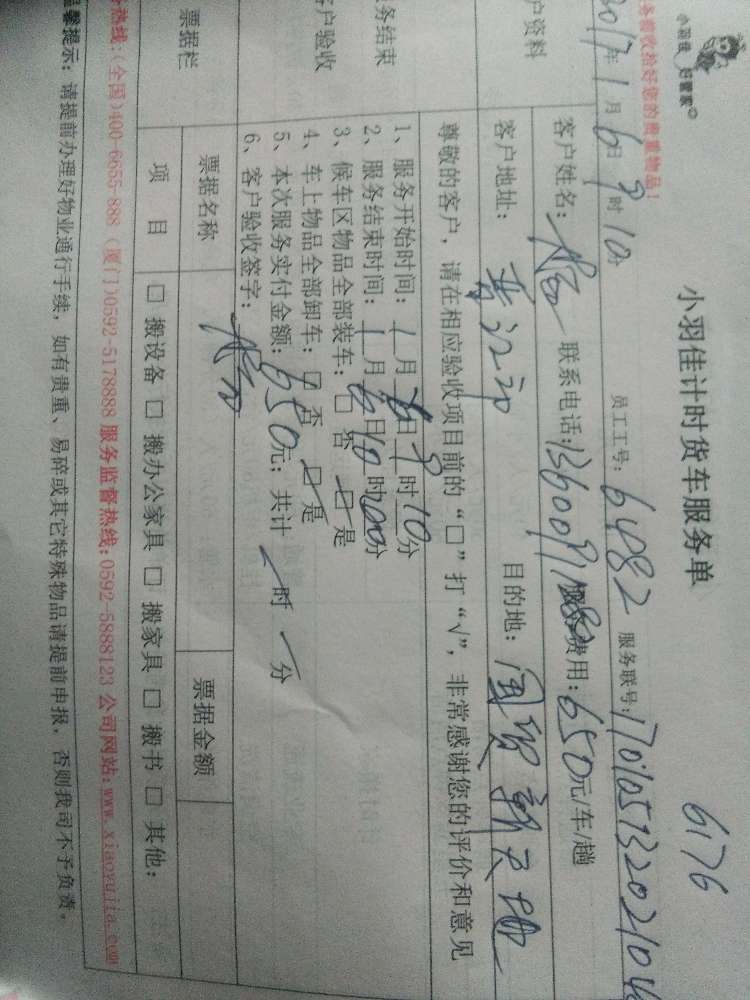 小羽佳 好管家
小羽佳计时货车服务单
6176
务验收恰好您的贵重物品！
2017年1月6日9时10分
员工工号：6482
服务联号：1701051320210
户资料
客户姓名：
联系电话：
服务费用：650元/车/趟
客户地址：
目的地：国贸新天地
尊敬的客户，请在相应验收项目前的“□”打“√”，非常感谢您的评价和意见
务结束
客户验收
1、服务开始时间：1月6日9时10分
2、服务结束时间：1月6日10时00分
3、候车区物品全部装车：□否 □是
4、车上物品全部卸车：□否 □是
5、本次服务实付金额：650元；共计 时 分
6、客户验收签字：
票据栏
票据名称
票据金额
项目
□搬设备 □搬办公家具 □搬家具 □搬书 □其他：
务热线：(全国)400-6655-888 (厦门)0592-5178888 服务监督热线:0592-5888123 公司网站:www.xiaoyujia.com
温馨提示：请提前办理好物业通行手续，如有贵重、易碎或其它特殊物品请提前申报，否则我司不予负责。